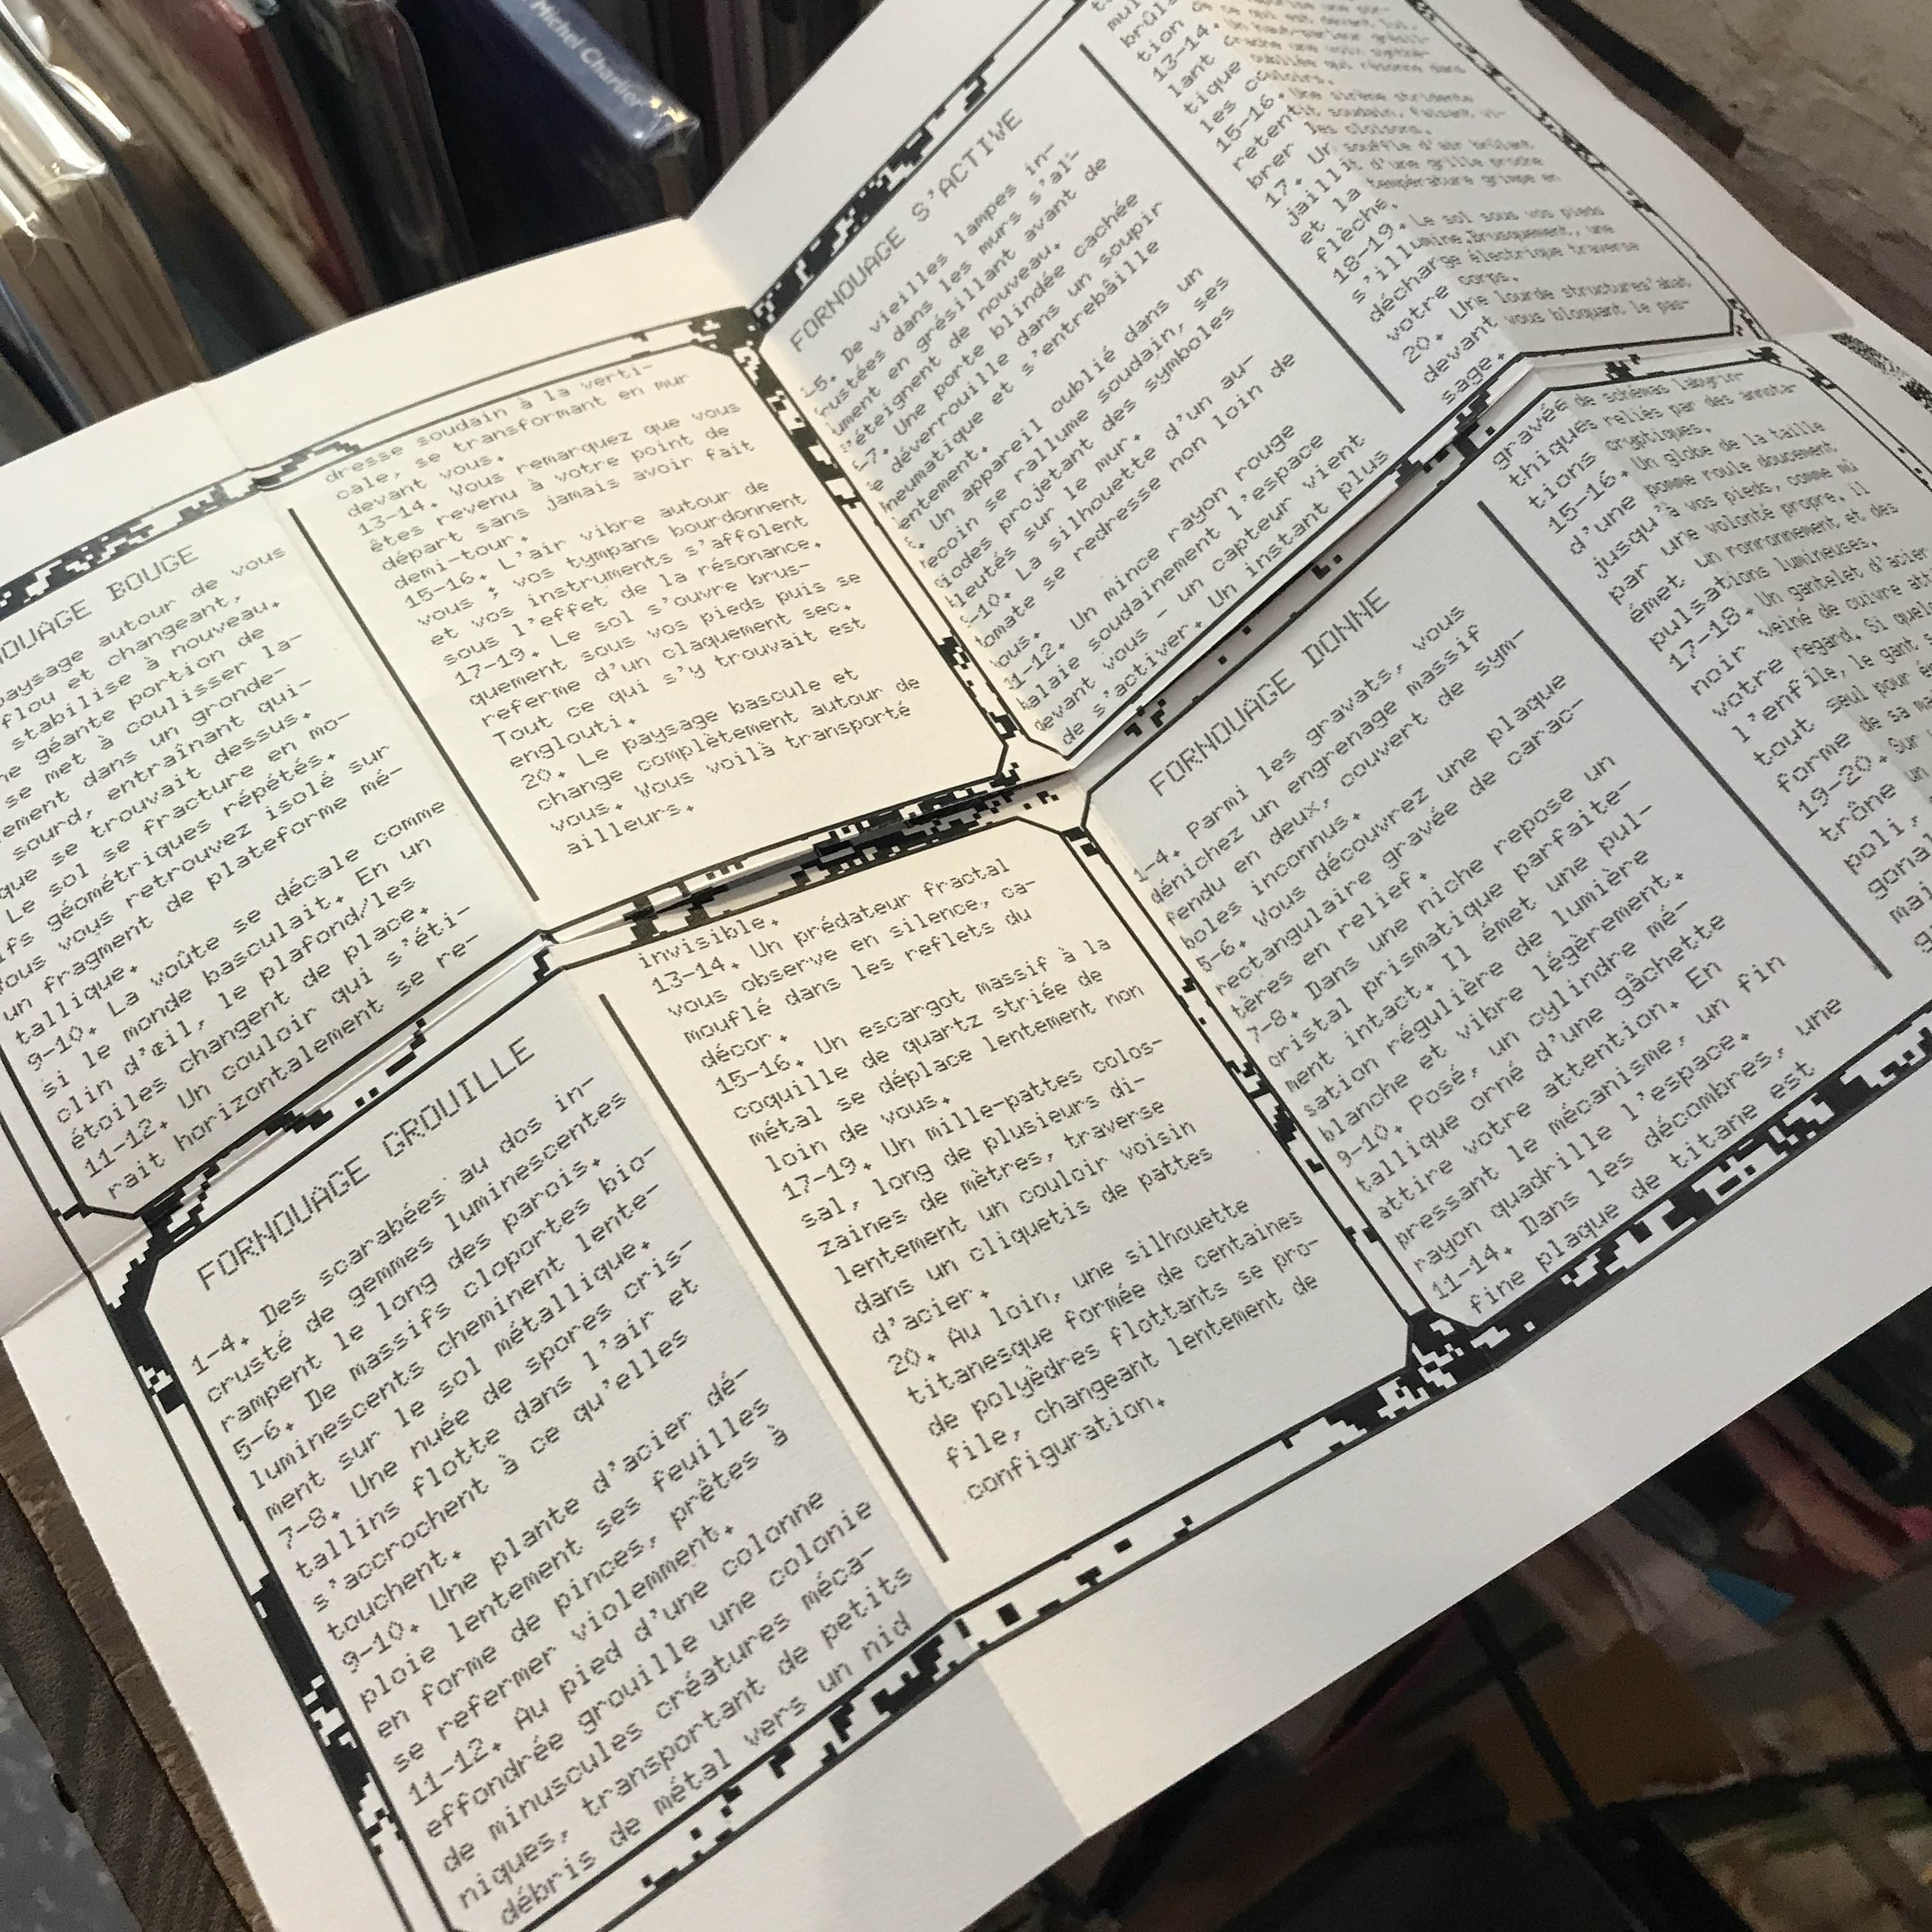 Michel Charlier
OUAGE BOUGE
paysage autour de vous
flou et changeant,
stabilise à nouveau.
ne géante portion de
se met à coulisser la-
ement dans un gronde-
sourd, entraînant qui-
que se trouvait dessus.
Le sol se fracture en mo-
ifs géométriques répétés.
Vous vous retrouvez isolé sur
un fragment de plateforme mé-
tallique.
9-10. La voûte se décale comme
si le monde basculait. En un
clin d'œil, le plafond/les
étoiles changent de place.
11-12. Un couloir qui s'éti-
rait horizontalement se re-
dresse soudain à la verti-
cale, se transformant en mur
devant vous.
13-14. Vous remarquez que vous
êtes revenu à votre point de
départ sans jamais avoir fait
demi-tour.
15-16. L'air vibre autour de
vous ; vos tympans bourdonnent
et vos instruments s'affolent
sous l'effet de la résonance.
17-19. Le sol s'ouvre brus-
quement sous vos pieds puis se
referme d'un claquement sec.
Tout ce qui s'y trouvait est
englouti.
20. Le paysage bascule et
change complètement autour de
vous. Vous voilà transporté
ailleurs.
FORNOUAGE S'ACTIVE
1-5. De vieilles lampes in-
crustées dans les murs s'al-
lument en grésillant avant de
s'éteignent de nouveau.
Une porte blindée cachée
déverrouille dans un soupir
pneumatique et s'entrebâille
lentement.
Un appareil oublié dans un
recoin se rallume soudain, ses
diodes projetant des symboles
bleutés sur le mur.
-10. La silhouette d'un au-
tomate se redresse non loin de
vous.
11-12. Un mince rayon rouge
balaie soudainement l'espace
devant vous - un capteur vient
de s'activer. Un instant plus
13-14. Un haut-parleur grésil-
lant crache une voix synthé-
tique oubliée qui résonne dans
les couloirs.
15-16. Une sirène stridente
retentit soudain, faisant vi-
brer les cloisons.
17. Un souffle d'air brûlant
jaillit d'une grille proche
et la température grimpe en
flèche.
18-19. Le sol sous vos pieds
s'illumine. Brusquement, une
décharge électrique traverse
votre corps.
20. Une lourde structures'abat
devant vous bloquant le pas-
sage.
FORNOUAGE GROUILLE
1-4. Des scarabées au dos in-
crusté de gemmes luminescentes
rampent le long des parois.
5-6. De massifs cloportes bio-
luminescents cheminent lente-
ment sur le sol métallique.
7-8. Une nuée de spores cris-
tallins flotte dans l'air et
s'accrochent à ce qu'elles
touchent.
9-10. Une plante d'acier dé-
ploie lentement ses feuilles
en forme de pinces, prêtes à
se refermer violemment.
11-12. Au pied d'une colonne
effondrée grouille une colonie
de minuscules créatures méca-
niques, transportant de petits
débris de métal vers un nid
invisible.
13-14. Un prédateur fractal
vous observe en silence, ca-
mouflé dans les reflets du
décor.
15-16. Un escargot massif à la
coquille de quartz striée de
métal se déplace lentement non
loin de vous.
17-19. Un mille-pattes colos-
sal, long de plusieurs di-
zaines de mètres, traverse
lentement un couloir voisin
dans un cliquetis de pattes
d'acier.
20. Au loin, une silhouette
titanesque formée de centaines
de polyèdres flottants se pro-
file, changeant lentement de
configuration.
FORNOUAGE DONNE
1-4. Parmi les gravats, vous
dénichez un engrenage massif
fendu en deux, couvert de sym-
boles inconnus.
5-6. Vous découvrez une plaque
rectangulaire gravée de carac-
tères en relief.
7-8. Dans une niche repose un
cristal prismatique parfaite-
ment intact. Il émet une pul-
sation régulière de lumière
blanche et vibre légèrement.
9-10. Posé, un cylindre mé-
tallique orné d'une gâchette
attire votre attention. En
pressant le mécanisme, un fin
rayon quadrille l'espace.
11-14. Dans les décombres, une
fine plaque de titane est
gravée de schémas labyrin-
thiques reliés par des annota-
tions cryptiques.
15-16. Un globe de la taille
d'une pomme roule doucement
jusqu'à vos pieds, comme mû
par une volonté propre. il
émet un ronronnement et des
pulsations lumineuses.
17-18. Un gantelet d'acier
noir veiné de cuivre
votre regard. Si
l'enfile, le gant
tout seul pour
forme de sa
19-20. Sur
trône un
poli,